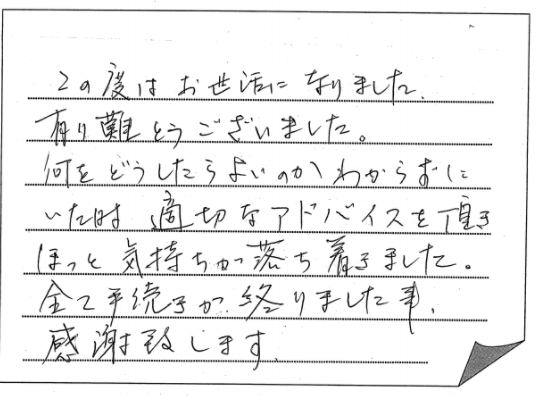 この度はお世話になりました.
有り難とうございました。
何をどうしたらよいのかわからずに
いた時適切なアドバイスを頂き
ほっと気持ちが落ち着きました。
全て手続きが終りました事,
感謝致します.